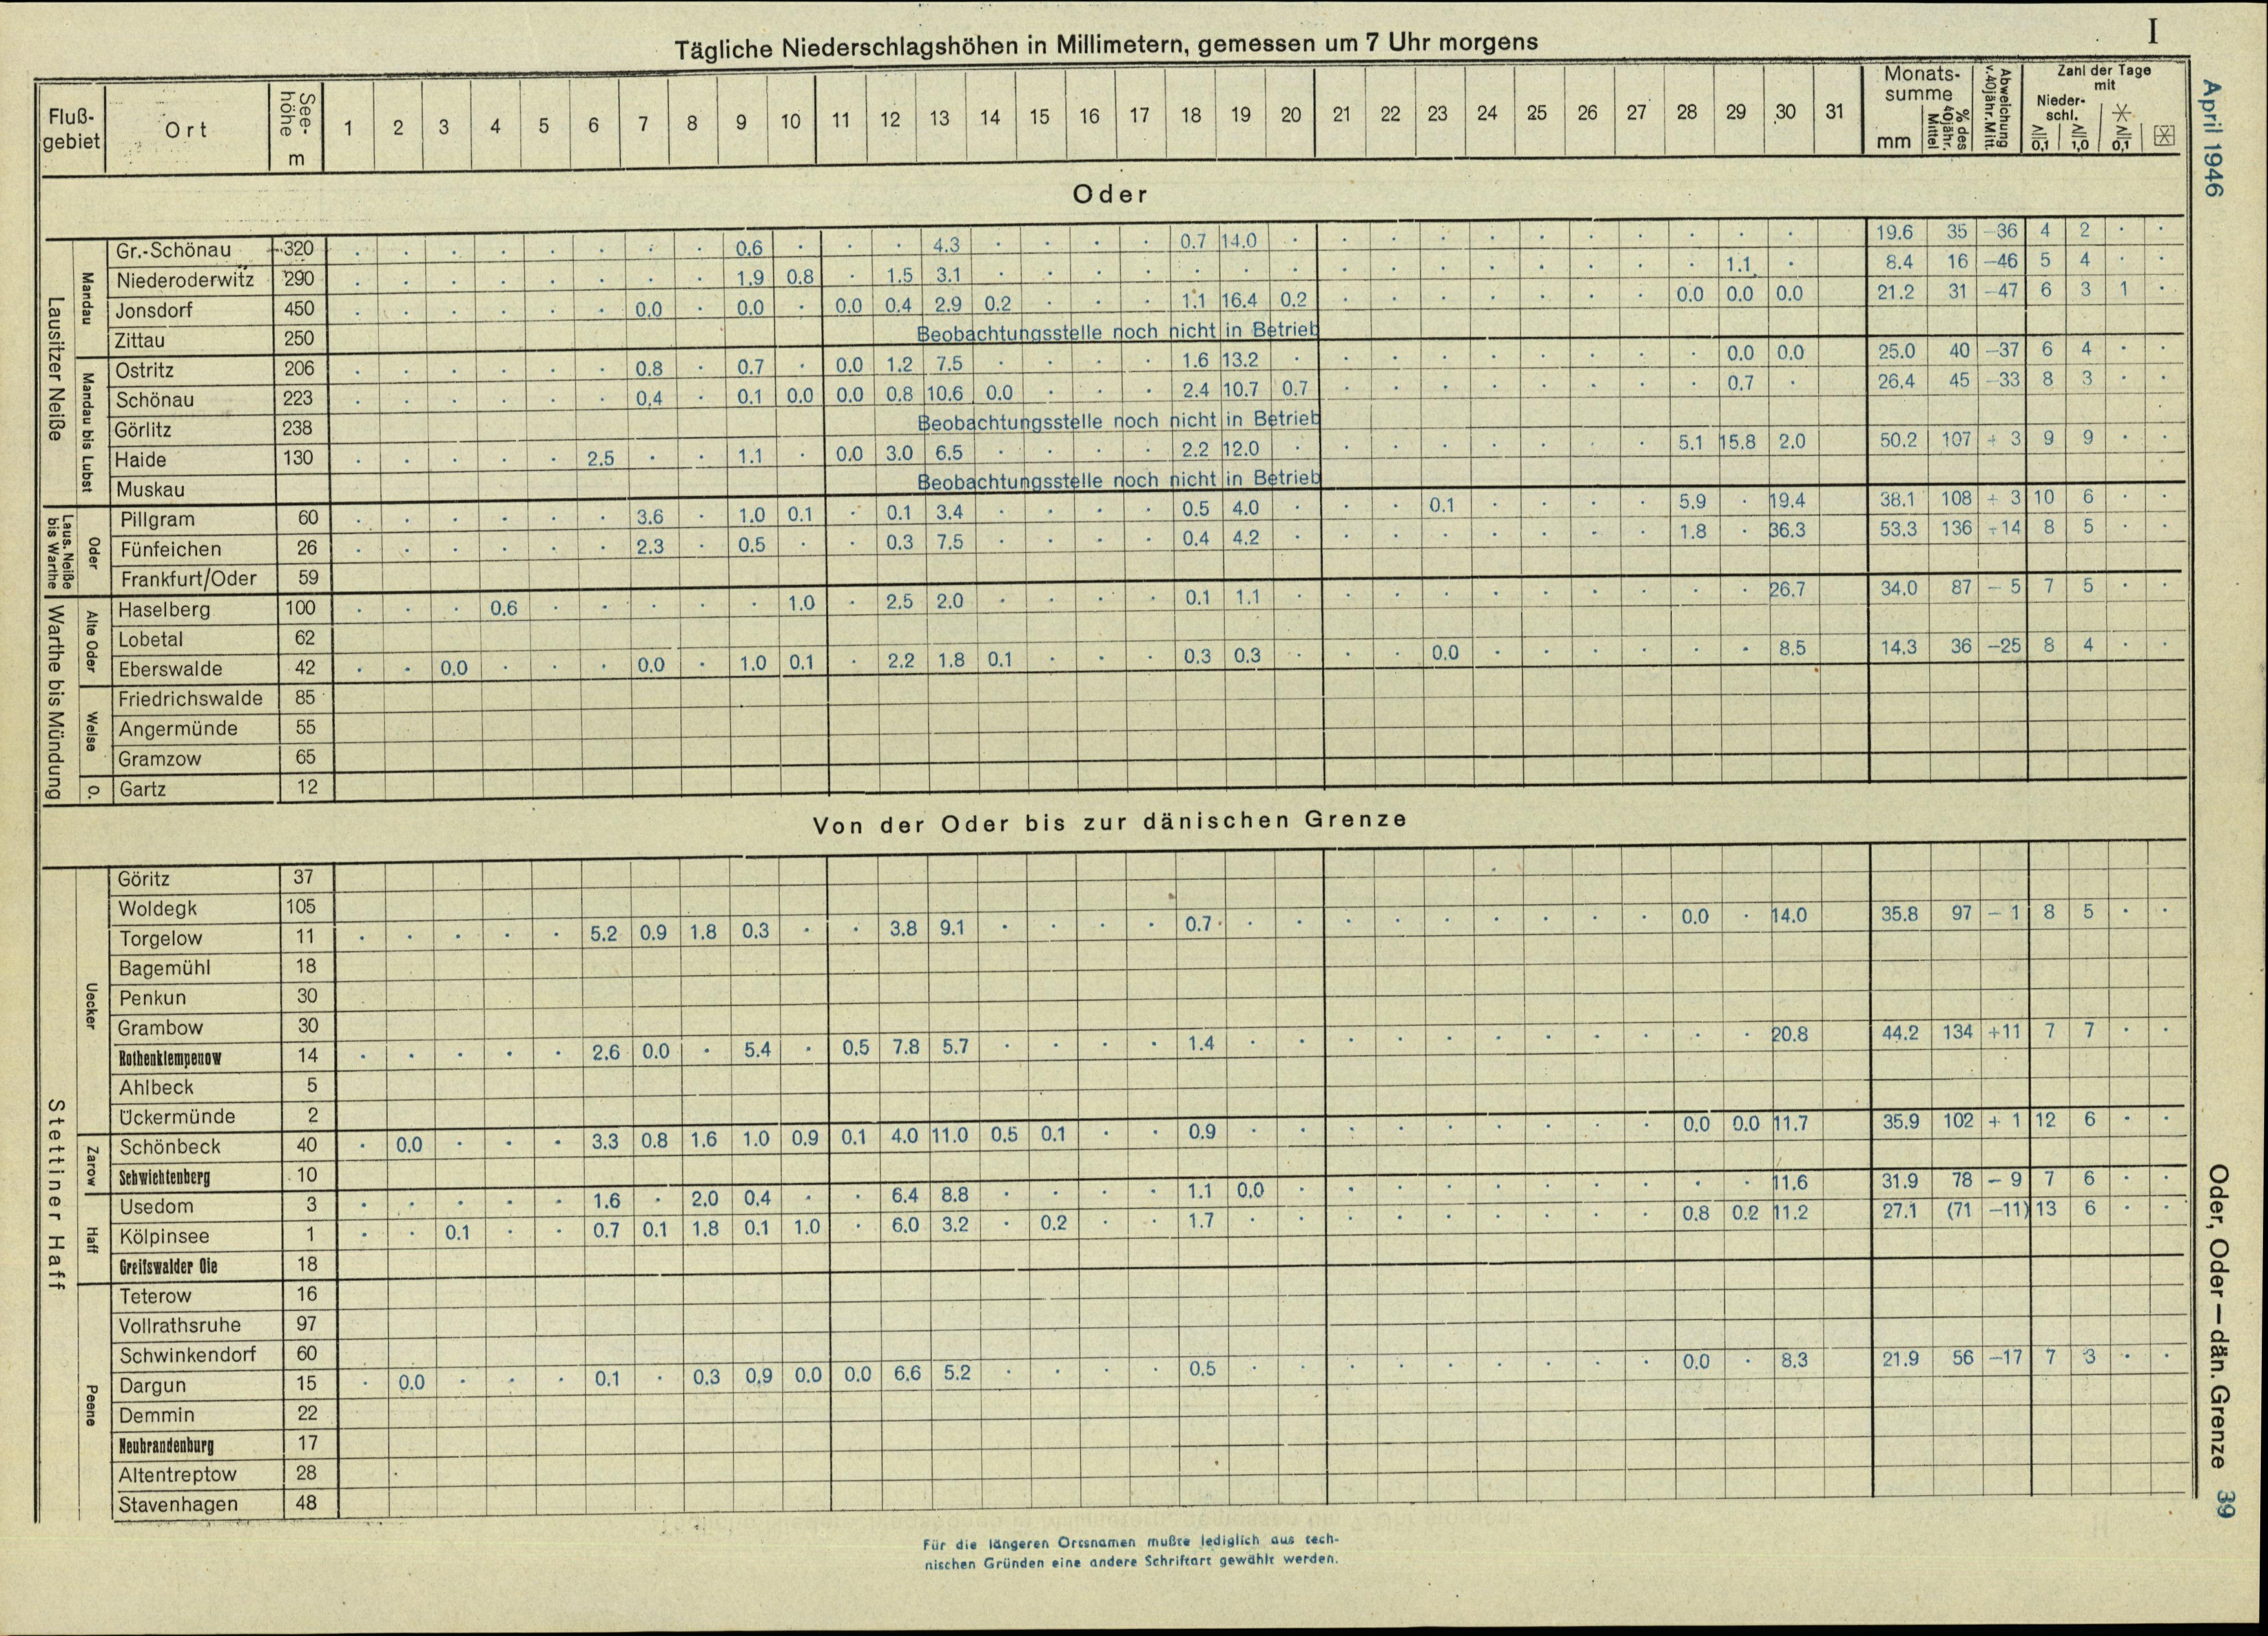 I
Tägliche Niederschlagshöhen in Millimetern, gemessen um 7 Uhr morgens
Fluß-gebiet Ort See-höhe m 1 2 3 4 5 6 7 8 9 10 11 12 13 14 15 16 17 18 19 20 21 22 23 24 25 26 27 28 29 30 31 Monats-summe mm % des 40jähr. Mittel Abweichung v. 40jähr. Mitt. Zahl der Tage mit Nieder-schl. ≥ 0,1 ≥ 1,0 ≥ 0,1
Oder
Lausitzer Neiße
Mandau
Gr.-Schönau 320 . . . . . . . . 0.6 . . . 4.3 . . . . 0.7 14.0 . . . . . . . . . . . 19.6 35 −36 4 2 . .
Niederoderwitz 290 . . . . . . . . 1.9 0.8 . 1.5 3.1 . . . . . . . . . . . . . . . 1.1 . 8.4 16 −46 5 4 . .
Jonsdorf 450 . . . . . . 0.0 . 0.0 . 0.0 0.4 2.9 0.2 . . . 1.1 16.4 0.2 . . . . . . . 0.0 0.0 0.0 21.2 31 −47 6 3 1 .
Zittau 250 Beobachtungsstelle noch nicht in Betrieb
Mandau bis Lubst
Ostritz 206 . . . . . . 0.8 . 0.7 . 0.0 1.2 7.5 . . . . 1.6 13.2 . . . . . . . . . 0.0 0.0 25.0 40 −37 6 4 . .
Schönau 223 . . . . . . 0.4 . 0.1 0.0 0.0 0.8 10.6 0.0 . . . 2.4 10.7 0.7 . . . . . . . . 0.7 . 26.4 45 −33 8 3 . .
Görlitz 238 Beobachtungsstelle noch nicht in Betrieb
Haide 130 . . . . . 2.5 . . 1.1 . 0.0 3.0 6.5 . . . . 2.2 12.0 . . . . . . . . 5.1 15.8 2.0 50.2 107 + 3 9 9 . .
Muskau Beobachtungsstelle noch nicht in Betrieb
Laus. Neiße bis Warthe
Oder
Pillgram 60 . . . . . . 3.6 . 1.0 0.1 . 0.1 3.4 . . . . 0.5 4.0 . . . 0.1 . . . . 5.9 . 19.4 38.1 108 + 3 10 6 . .
Fünfeichen 26 . . . . . . 2.3 . 0.5 . . 0.3 7.5 . . . . 0.4 4.2 . . . . . . . . 1.8 . 36.3 53.3 136 +14 8 5 . .
Frankfurt/Oder 59
Warthe bis Mündung
Alte Oder
Haselberg 100 . . . 0.6 . . . . . 1.0 . 2.5 2.0 . . . . 0.1 1.1 . . . . . . . . . . 26.7 34.0 87 − 5 7 5 . .
Lobetal 62
Eberswalde 42 . . 0.0 . . . 0.0 . 1.0 0.1 . 2.2 1.8 0.1 . . . 0.3 0.3 . . . 0.0 . . . . . . 8.5 14.3 36 −25 8 4 . .
Welse
Friedrichswalde 85
Angermünde 55
Gramzow 65
O.
Gartz 12
Von der Oder bis zur dänischen Grenze
Stettiner Haff
Uecker
Göritz 37
Woldegk 105
Torgelow 11 . . . . . 5.2 0.9 1.8 0.3 . . 3.8 9.1 . . . . 0.7 . . . . . . . . . 0.0 . 14.0 35.8 97 − 1 8 5 . .
Bagemühl 18
Penkun 30
Grambow 30
Rothenklempenow 14 . . . . . 2.6 0.0 . 5.4 . 0.5 7.8 5.7 . . . . 1.4 . . . . . . . . . . . 20.8 44.2 134 +11 7 7 . .
Ahlbeck 5
Ückermünde 2
Zarow
Schönbeck 40 . 0.0 . . . 3.3 0.8 1.6 1.0 0.9 0.1 4.0 11.0 0.5 0.1 . . 0.9 . . . . . . . . . 0.0 0.0 11.7 35.9 102 + 1 12 6 . .
Schwichtenberg 10
Haff
Usedom 3 . . . . . 1.6 . 2.0 0.4 . . 6.4 8.8 . . . . 1.1 0.0 . . . . . . . . . . 11.6 31.9 78 − 9 7 6 . .
Kölpinsee 1 . . 0.1 . . 0.7 0.1 1.8 0.1 1.0 . 6.0 3.2 . 0.2 . . 1.7 . . . . . . . . . 0.8 0.2 11.2 27.1 (71 −11) 13 6 . .
Greifswalder Oie 18
Peene
Teterow 16
Vollrathsruhe 97
Schwinkendorf 60
Dargun 15 . 0.0 . . . 0.1 . 0.3 0.9 0.0 0.0 6.6 5.2 . . . . 0.5 . . . . . . . . . 0.0 . 8.3 21.9 56 −17 7 3 . .
Demmin 22
Neubrandenburg 17
Altentreptow 28
Stavenhagen 48
Für die längeren Ortsnamen mußte lediglich aus tech-
nischen Gründen eine andere Schriftart gewählt werden.
April 1946
Oder, Oder — dän. Grenze 39